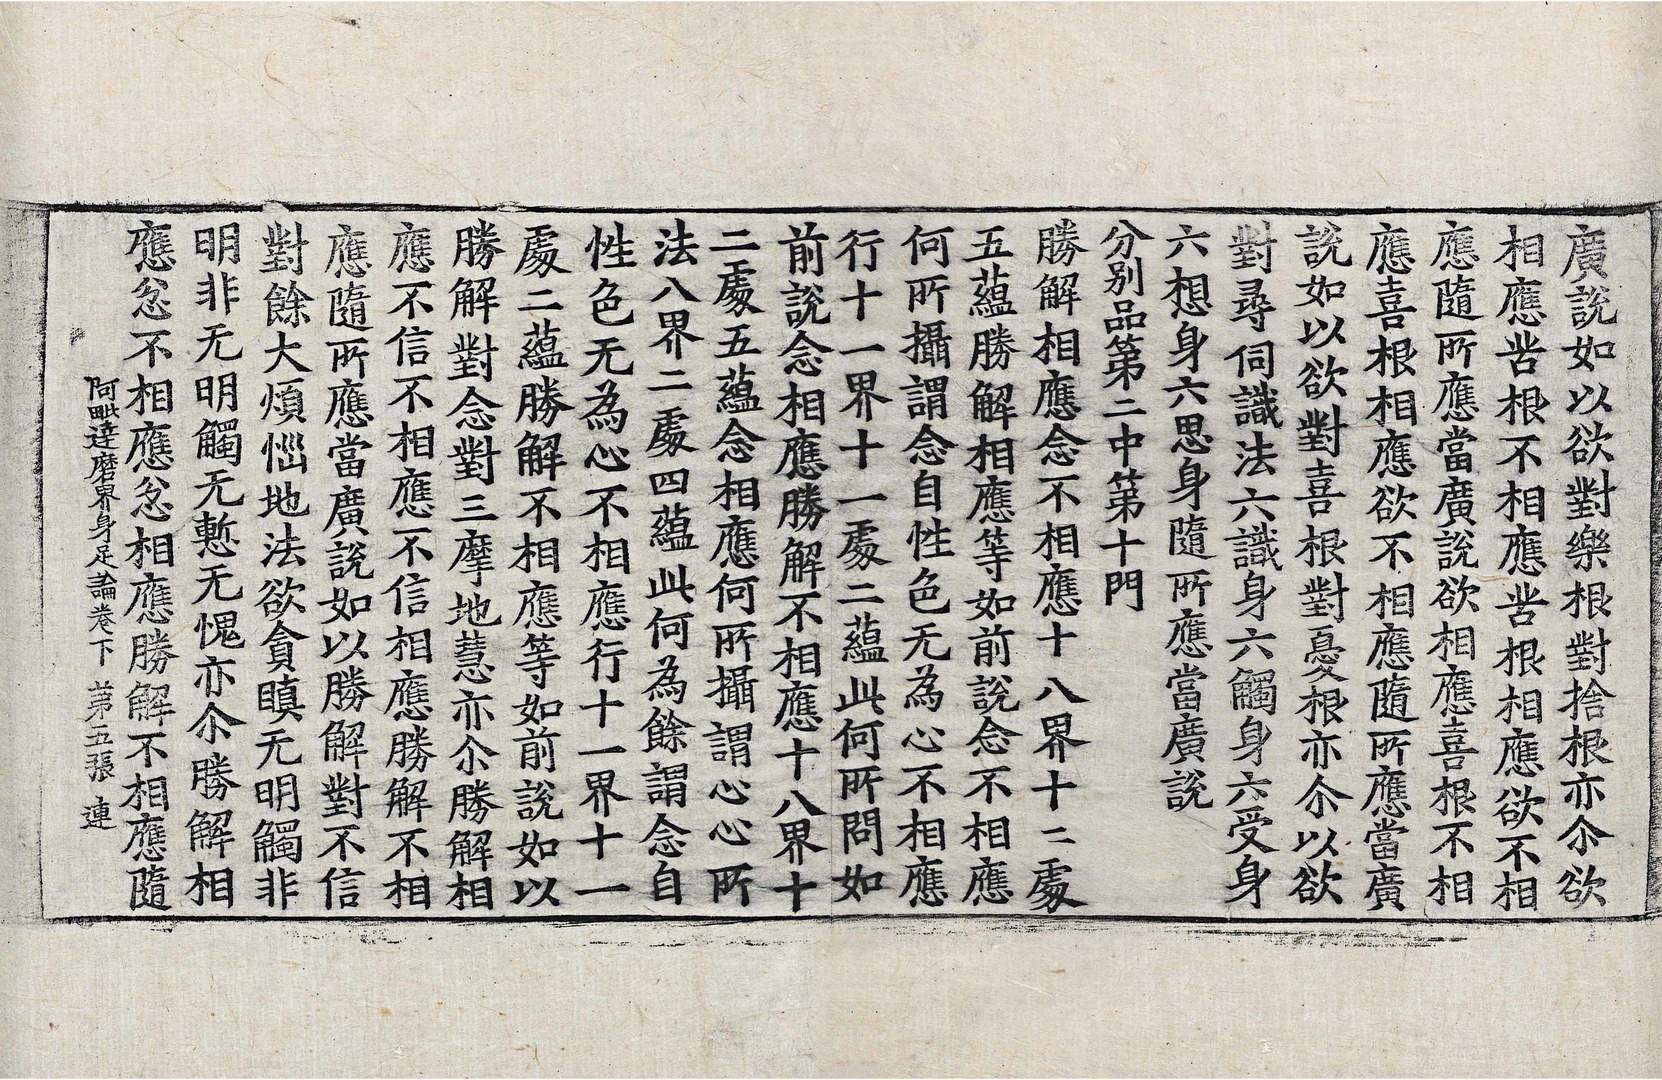 廣說如以欲對樂根對捨根亦尒欲
相應苦根不相應苦根相應欲不相
應隨所應當廣說欲相應喜根不相
應喜根相應欲不相應隨所應當廣
說如以欲對喜根對憂根亦尒以欲
對尋伺識法六識身六觸身六受身
六想身六思身隨所應當廣說
分別品第二中第十門
勝解相應念不相應十八界十二處
五蘊勝解相應等如前說念不相應
何所攝謂念自性色无為心不相應
行十一界十一處二蘊此何所問如
前說念相應勝解不相應十八界十
二處五蘊念相應何所攝謂心心所
法八界二處四蘊此何為餘謂念自
性色无為心不相應行十一界十一
處二蘊勝解不相應等如前說如以
勝解對念對三摩地慧亦尒勝解相
應不信不相應不信相應勝解不相
應隨所應當廣說如以勝解對不信
對餘大煩惱地法欲貪瞋无明觸非
明非无明觸无慙无愧亦尒勝解相
應忿不相應忿相應勝解不相應隨
阿毗達磨界身足論卷下 第五張 連